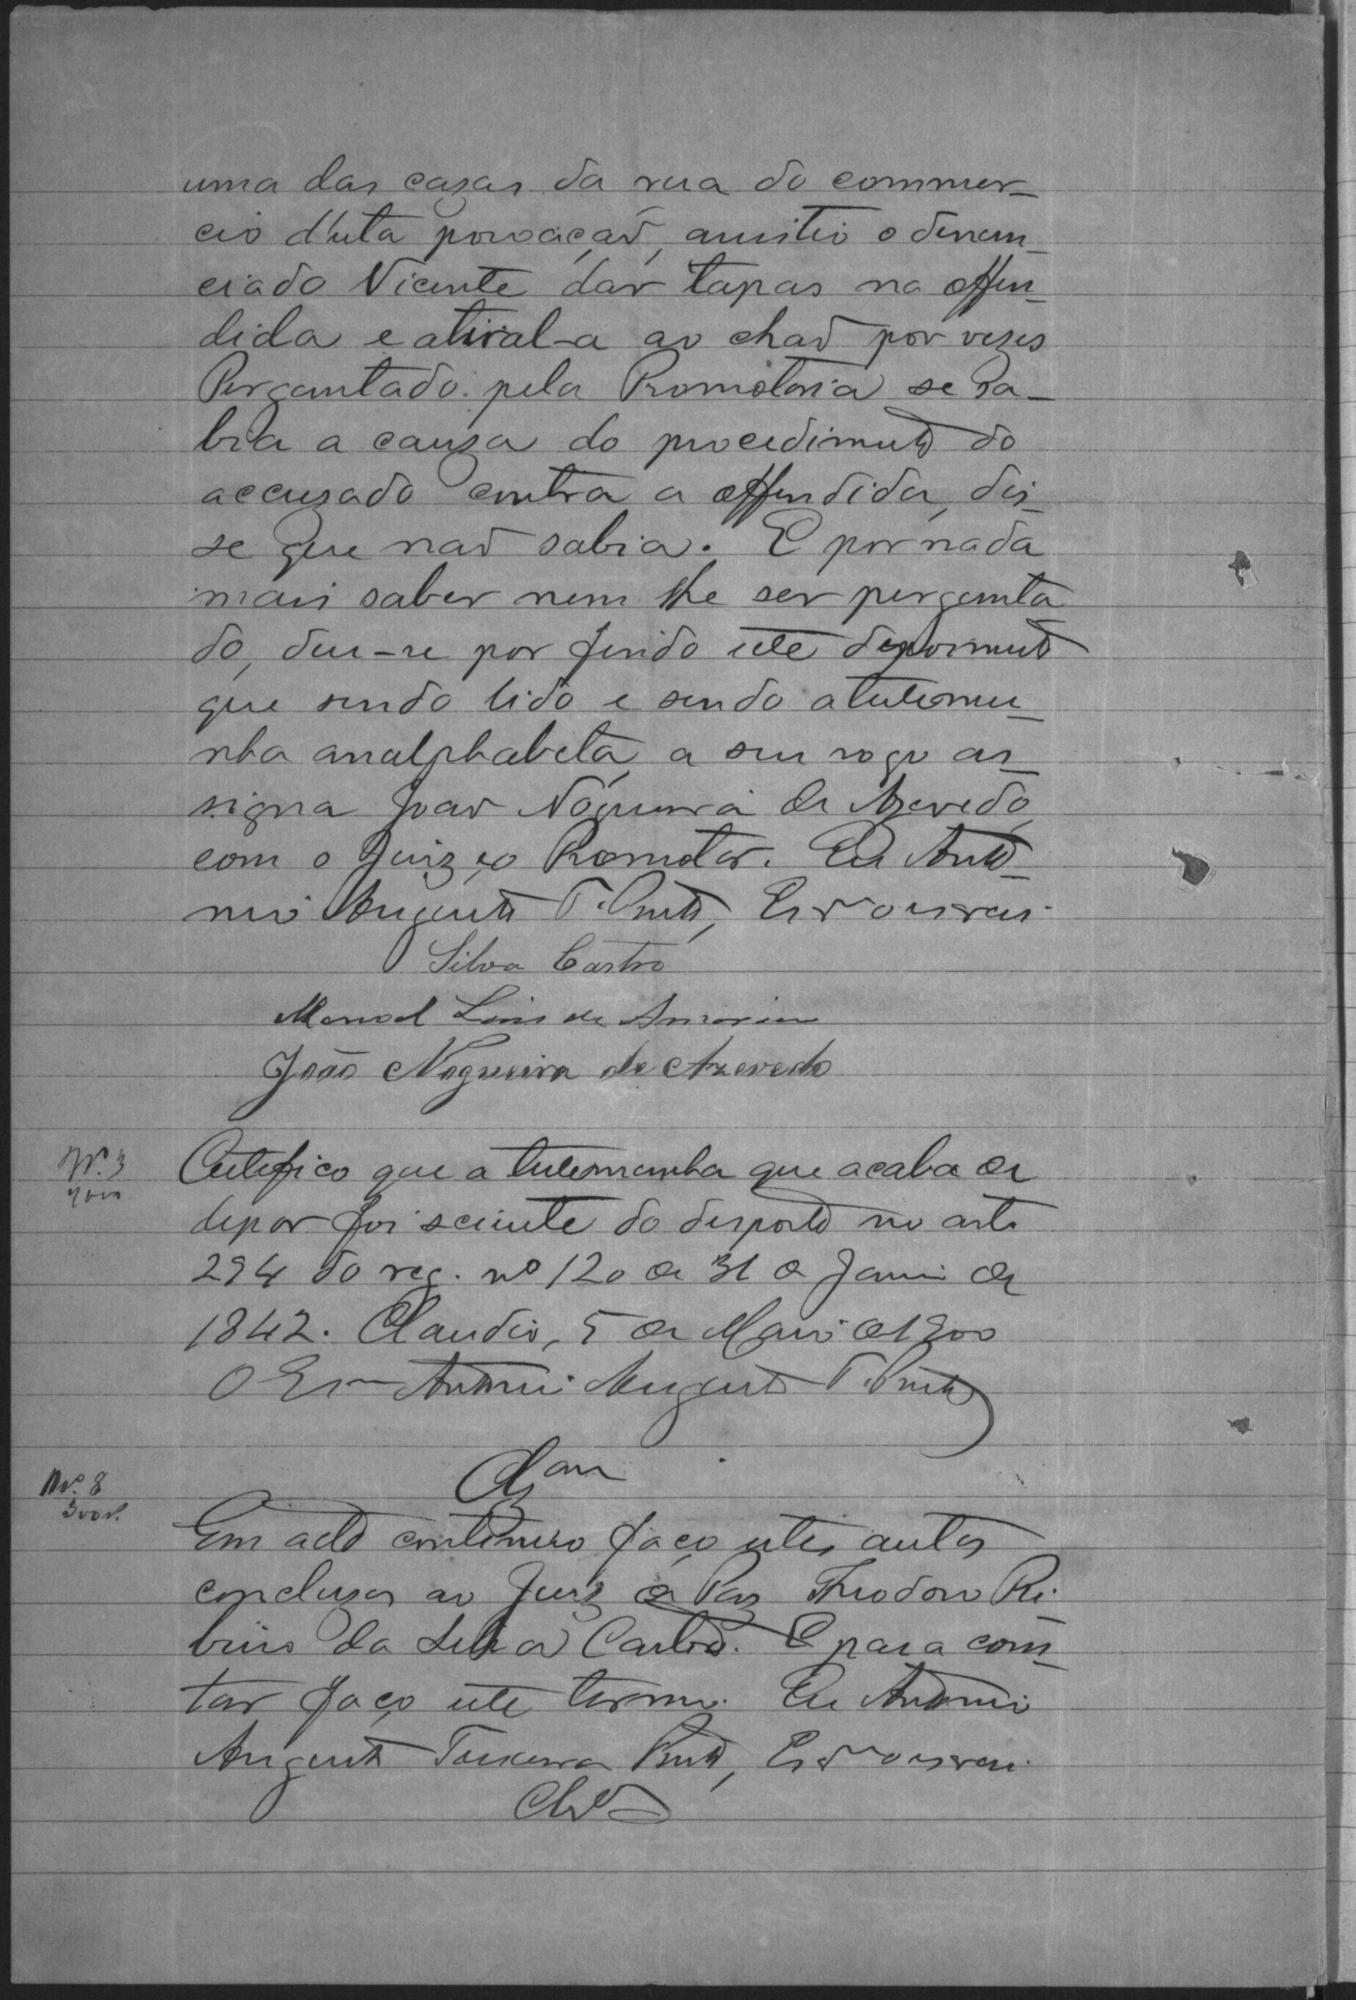 uma das cazas da rua do commer-
cio d'esta povoação, assistio o denun-
ciado Vicente dar tapas na offen-
dida e atiral-a ao chaõ por vezes
Perguntado pela Promotoria se sa-
bia a cauza do procedimento do
accuzado contra a offendida, dis-
se que naõ sabia. E por nada
mais saber nem lhe ser pergunta
do, deu-se por findo este depoimento
que sendo lido e sendo a testemu-
nha analphabeta, a seu rogo as-
signa Joaõ Nogueira de Azevedo
com o Juiz, e o Promotor. Eu Anto-
nio Augusto T. Preto, Escrvam o escrevi.
Silva Castro
Manoel Luis de Amorim
João Nogueira de Azevedo
Nº. 3
Certifico que a testemunha que acaba de
depor foi sciente do desposto no arto
294 do reg. nº 120 de 31 de Janeiro de
1842. Claudio, 5 de Maio de 1900
O Esam Antonio Augusto T. Preto
Clzam
Nº. 8
300 r.
Em acto continuo faço estes autos
concluzos ao Juiz de Paz Theodoro Ri-
beiro da Silva Castro. E para cons-
tar faço este termo. Eu Antonio
Augusto Teixeira Preto, Escrvam o escrevi.
Clos